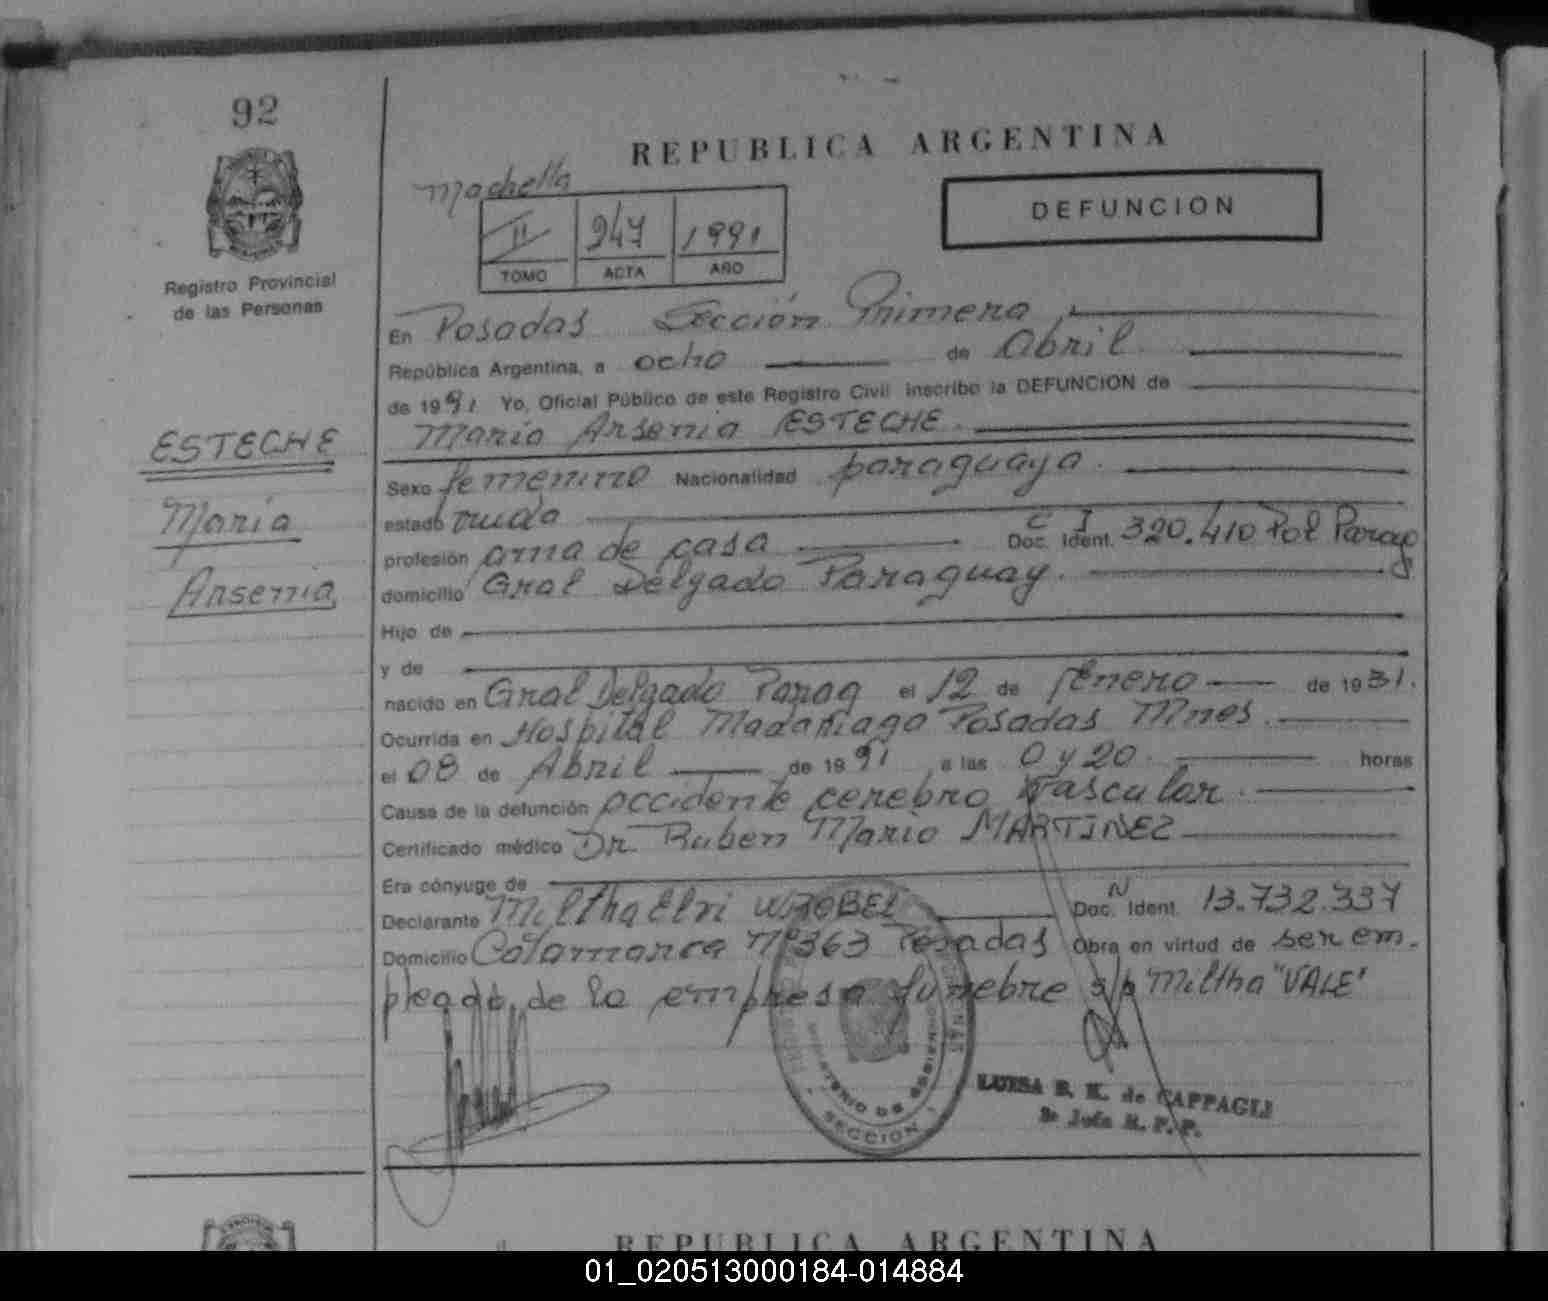 92
REPUBLICA ARGENTINA
DEFUNCION
II 247 1991
TOMO ACTA AÑO
Registro Provincial
de las Personas
En Posadas Sección Primera
República Argentina, a ocho de Abril
de 1991 Yo, Oficial Público de este Registro Civil inscribo la DEFUNCION de
ESTECHE
María
Arsenia
Maria Arsenia ESTECHE.
Sexo femenino Nacionalidad paraguaya.
estado viuda
profesión ama de casa Doc. Ident. C I 320.410 Pol Parag
domicilio Gral Delgado Paraguay.
Hijo de
y de
nacido en Gral Delgado Parag el 12 de Enero de 1931.
Ocurrida en Hospital Madariaga Posadas Mnes.
el 08 de Abril de 1991 a las 0 y 20. horas
Causa de la defunción accidente cerebro vascular.
Certificado médico Dr. Ruben Mario MARTINEZ
Era cónyuge de
Declarante Miltha Elvi Doc. Ident. N 13.732.337
Domicilio Catamarca Nº 363 Posadas Obra en virtud de ser em-
pleado de la empresa funebre s/p Miltha "VALE"
MINISTERIO DE GOBIERNO
SECCION
LUISA B. K. de CAPPAGLI
2º Jefe R. P. P.
REPUBLICA ARGENTINA
01_020513000184-014884